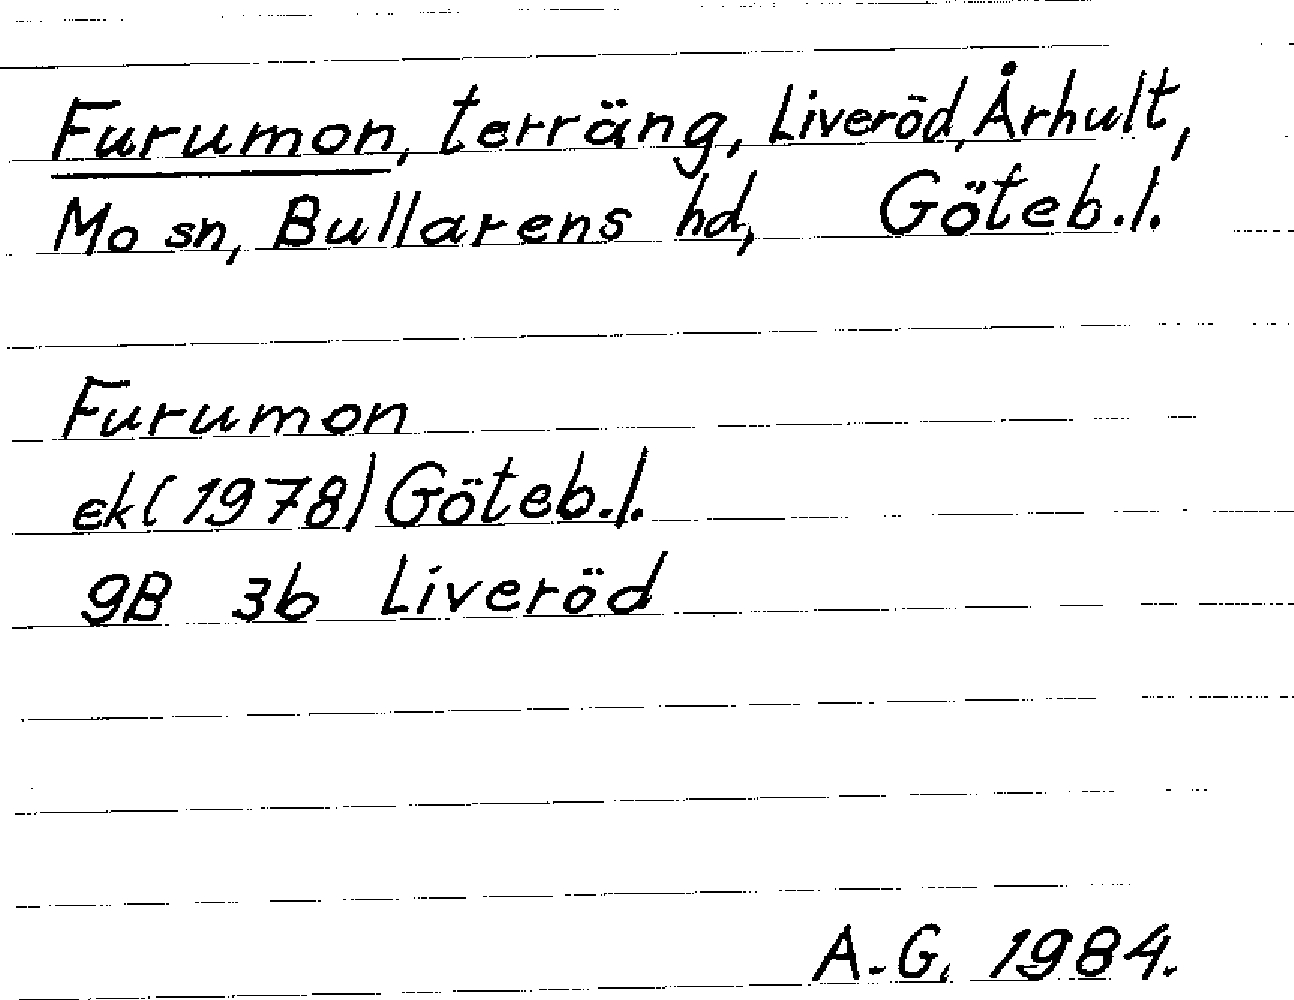 Furumon, terräng, Liveröd, Århult,
Mo sn, Bullarens hd, Göteb.l.
Furumon
ek (1978) Göteb.l.
9B 3b Liveröd
A.G. 1984.